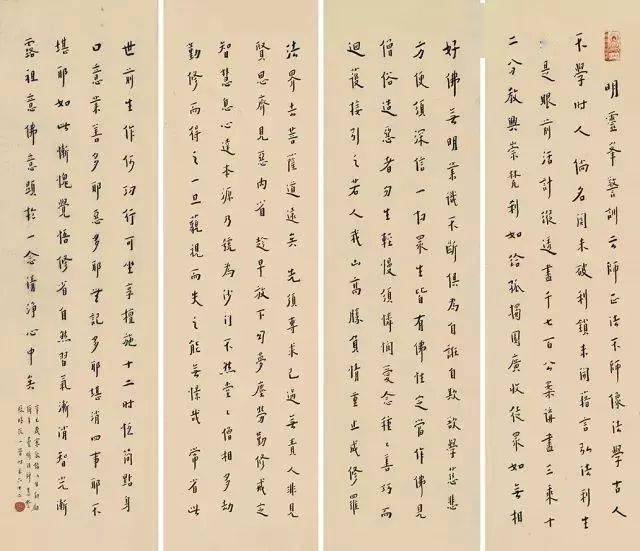 明靈峯警訓云師正法不師像法學古人
不學時人倘名關未破利鎖未開藉言弘法利生
是眼前活計縱透盡千七百公案講盡三乘十
二分教興崇梵刹如給孤獨園廣收徒眾如無相
好佛無明業識不斷俱為自誑自欺欲學慈悲
方便須深信一切眾生皆有佛性定當作佛見
僧俗造惡者勿生輕慢須憐憫愛念種種善巧而
迴護接引之若人我山高勝負情重止成修羅
法界去菩薩道遠矣先須專求己過毋責人非見
賢思齊見惡內省趁早放下勾夢塵勞勤修戒定
智慧息心達本源乃號為沙門不然堂堂僧相多劫
勤修而得之一旦藐視而失之能無悚哉常省此
世前生作何功行可坐享檀施十二時恆簡點身
口意業善多耶惡多耶無記多耶堪消四事耶不
堪耶如此慚愧覺悟修省自然習氣漸消智光漸
露祖意佛意顯於一念清淨心中矣